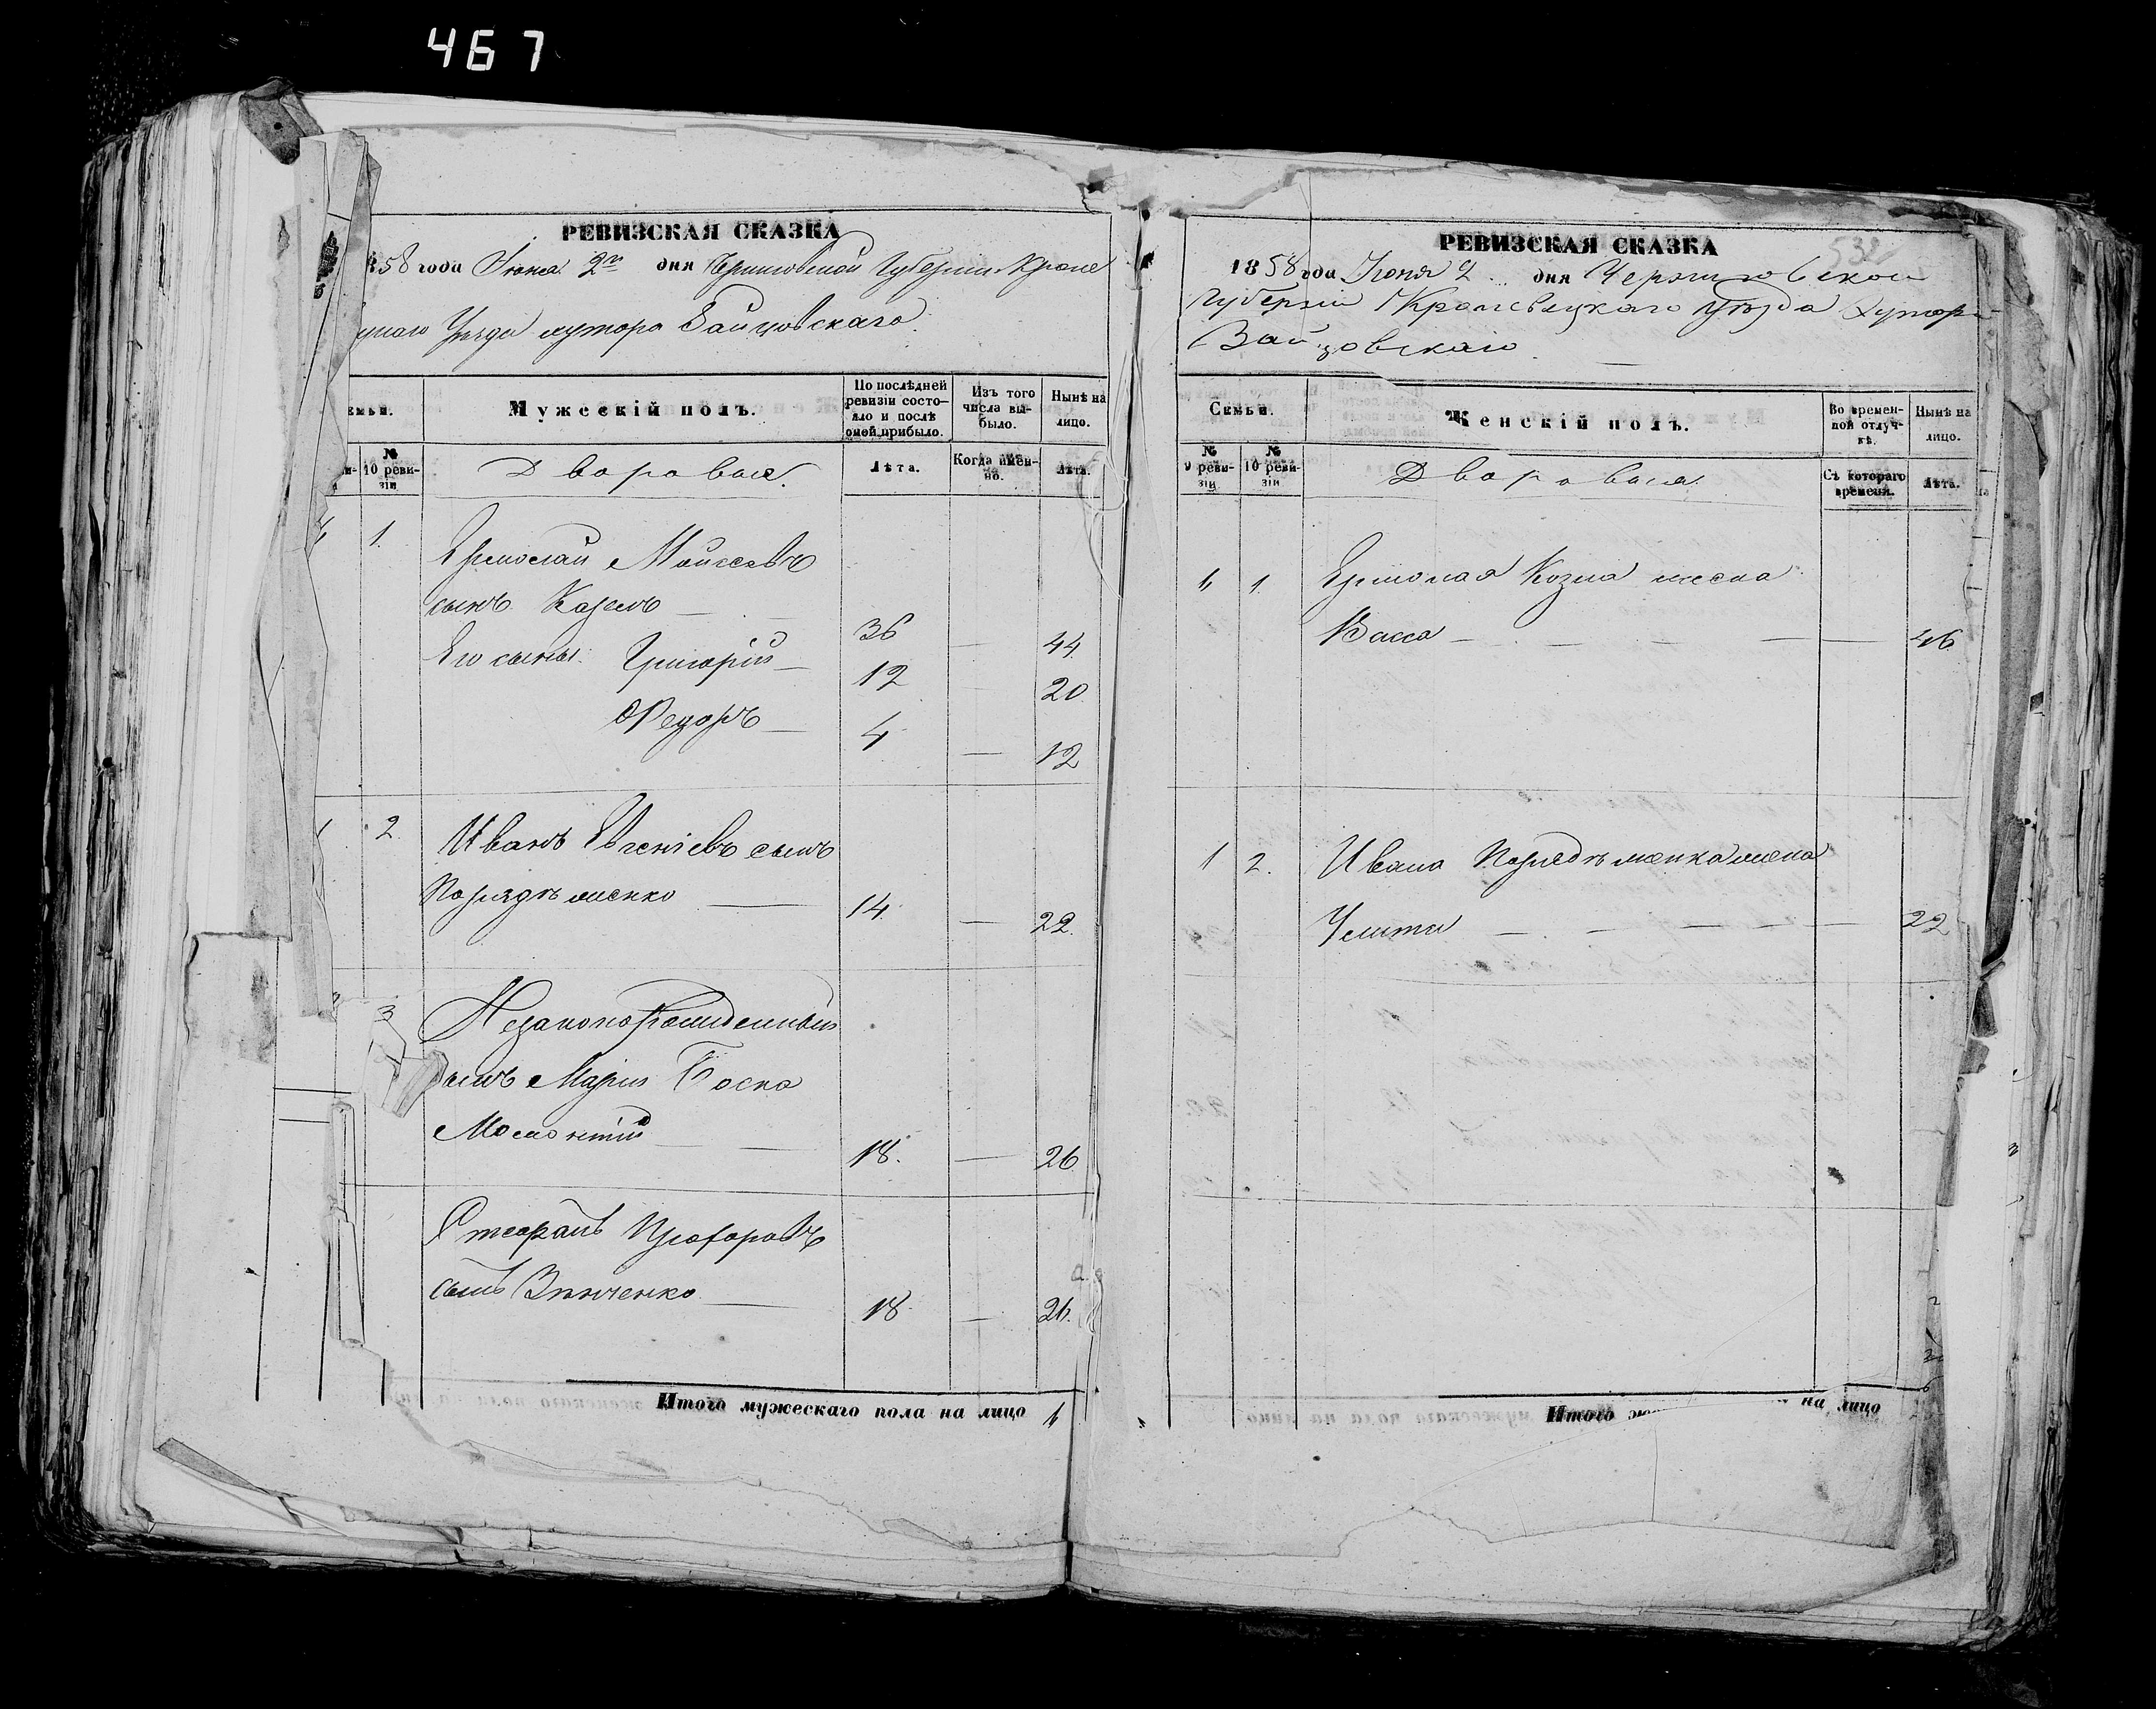 467
РЕВИЗСКАЯ СКАЗКА
858 года Июня 2го дня Черниговской Губерніи Кроле
цкаго Уѣзда хутора Зайцовскаго.
емьи.
Мужескій полъ.
По послѣдней ревизіи состояло и послѣ оной прибыло.
Изъ того числа выбыло.
Нынѣ на лицо.
№ 10 ревизіи
Дворовые.
Лѣта.
Когда именно.
Лѣта.
1.
Ермолай Моисеевъ
сынъ 36 — 44
Его сыны: Григорій — 12 — 20
Ѳедоръ — 4 — 12
2. Иванъ Евгеніевъ сынъ
— 14. — 22.
3 Незаконорожденный
сынъ Маріи
— 18. — 26
Прохоровъ
сынъ Зѣнченко — 18. — 26.
Итого мужескаго пола на лицо
РЕВИЗСКАЯ СКАЗКА
532
1858 года Іюня 2 дня Черниговской
Губерніи Кролевецкаго Уѣзда Хутора
Зайцовскаго
Семьи.
Женскій полъ.
Во временной отлучкѣ.
Нынѣ на лицо.
№ 9 ревизіи
№ 10 ревизіи
Дворовыя
Съ котораго времени.
Лѣта.
1. Ермолая Козла жена
Васса — — — — — 46.
1 2. Ивана жена
Улита — — — — — 22
Итого на лицо